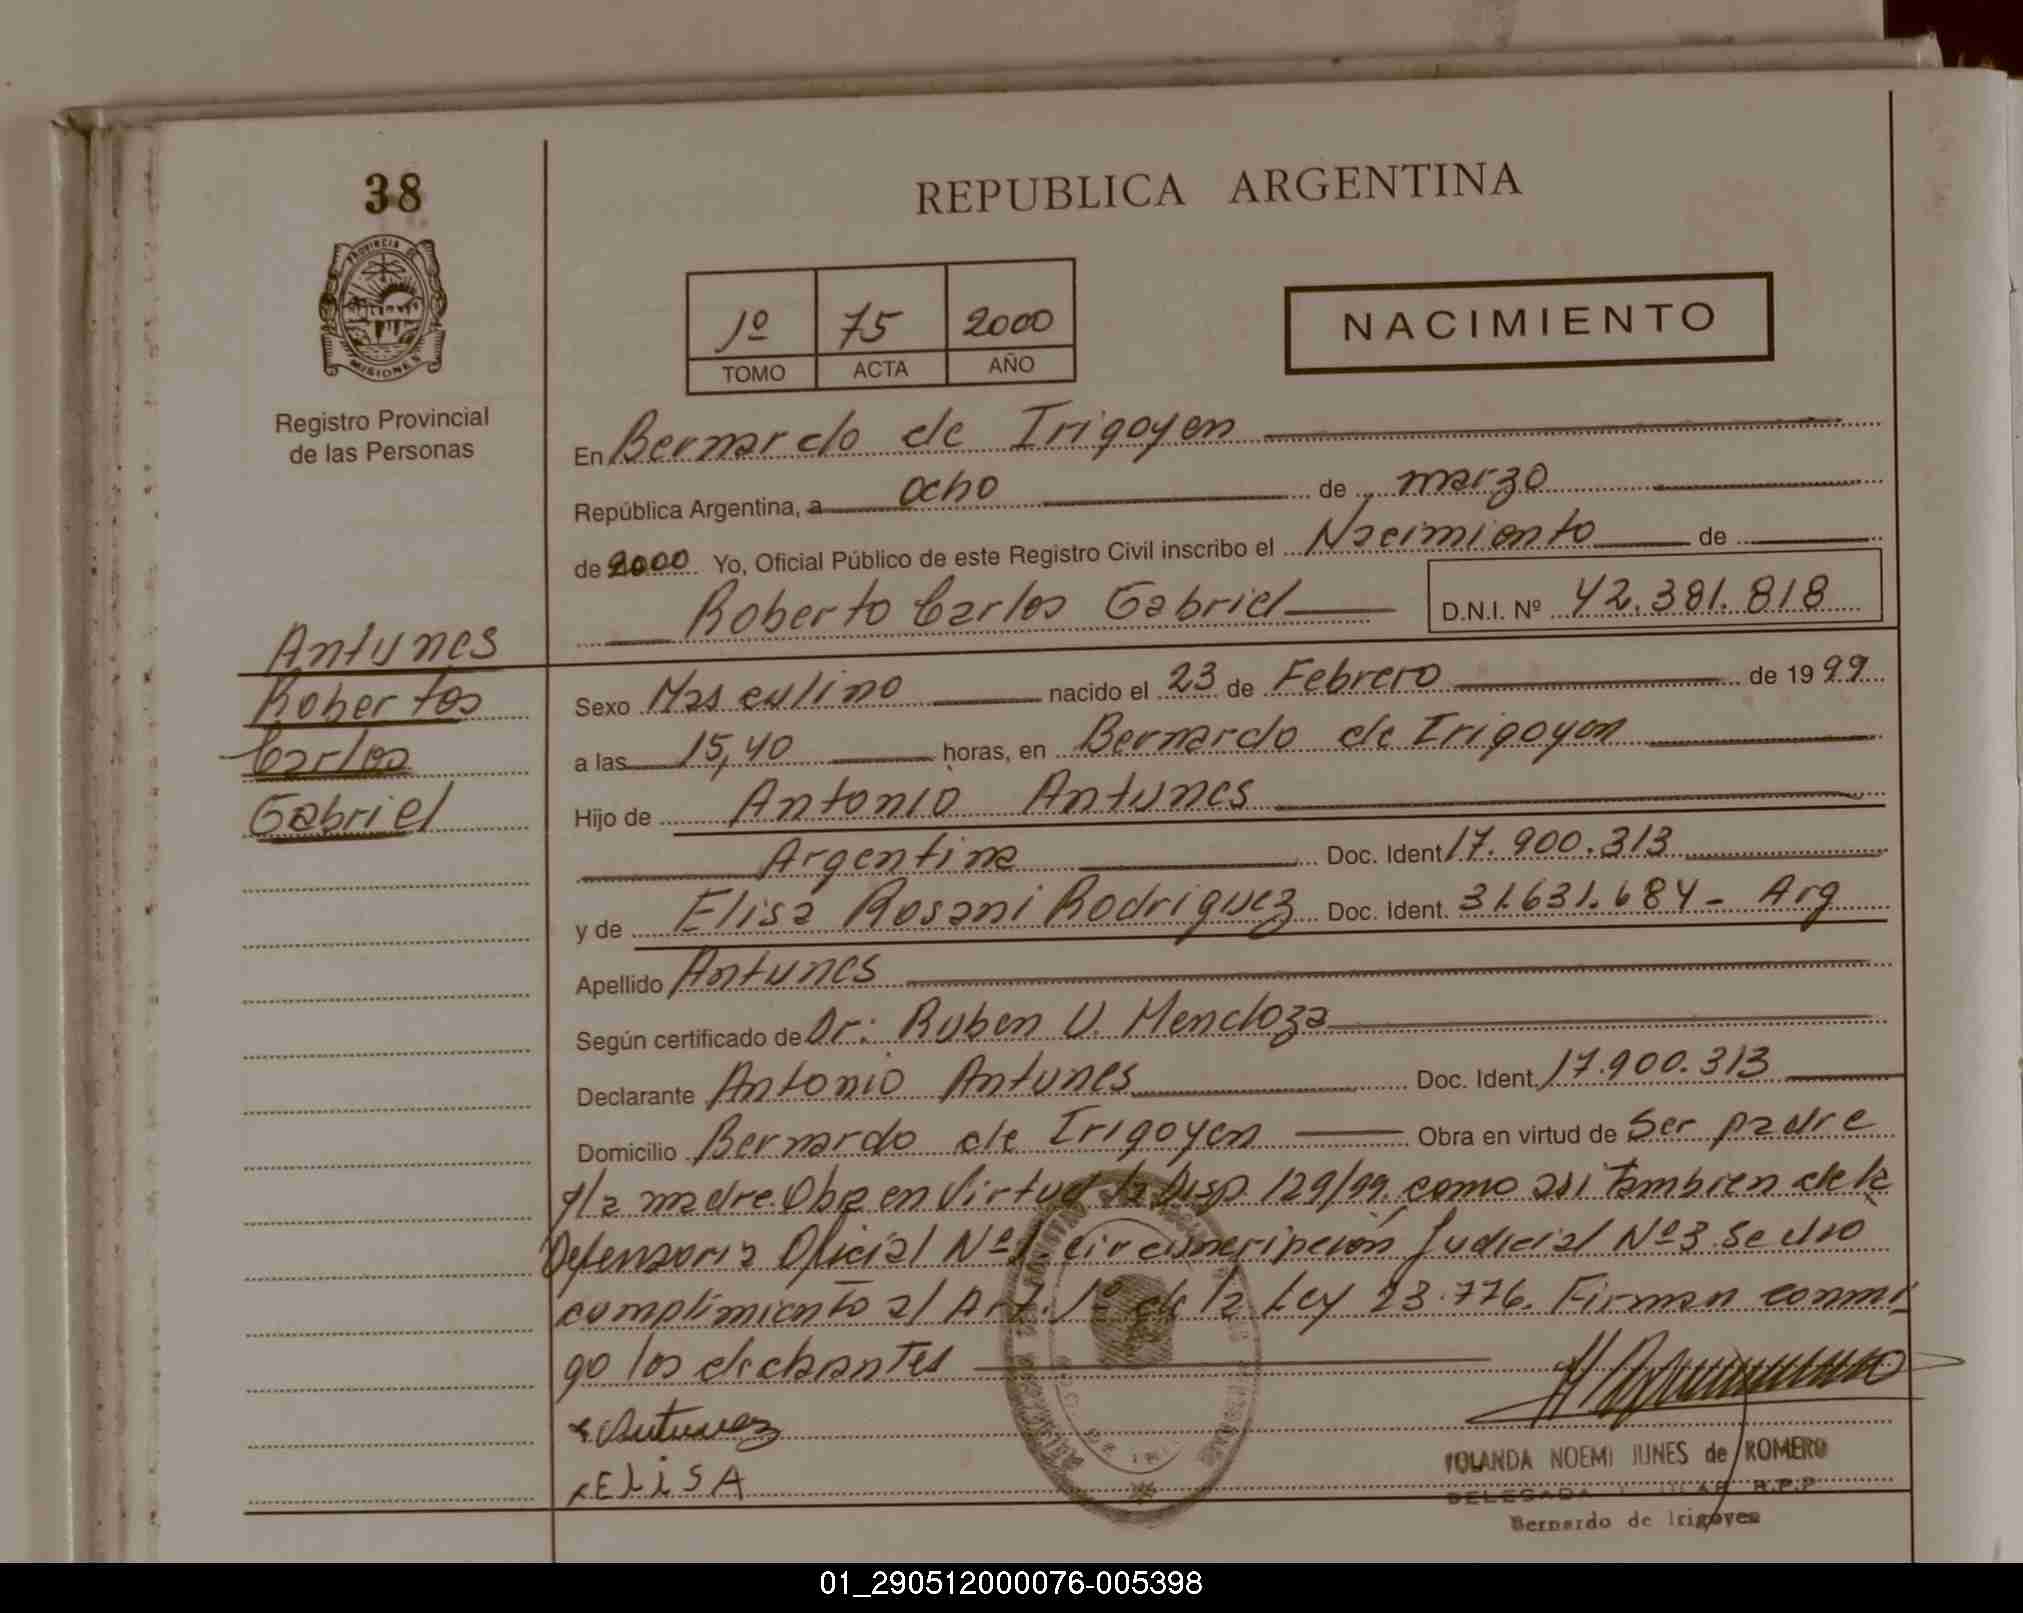 38
PROVINCIA DE
MISIONES
Registro Provincial
de las Personas
Antunes
Robertos
Carlos
Gabriel
REPUBLICA ARGENTINA
1º 75 2000
TOMO ACTA AÑO
NACIMIENTO
En Bernardo de Irigoyen
República Argentina, a ocho de marzo
de 2000 Yo, Oficial Público de este Registro Civil inscribo el Nacimiento de
Roberto Carlos Gabriel D.N.I. Nº 42.381.818
Sexo Masculino nacido el 23 de Febrero de 1999
a las 15,40 horas, en Bernardo de Irigoyen
Hijo de Antonio Antunes
Argentina Doc. Ident 17.900.313
y de Elisa Rosani Rodriguez Doc. Ident. 31.631.684 - Arg
Apellido Antunes
Según certificado de Dr: Ruben U. Mendoza
Declarante Antonio Antunes Doc. Ident. 17.900.313
Domicilio Bernardo de Irigoyen Obra en virtud de Ser padre
y la madre. Obra en Virtud la Disp 129/99. como asi Tambien de la
Defensoria Oficial Nº 1. circunscripcion Judicial Nº3 se dio
cumplimiento al Art. 1º de la Ley 23.776. Firman conmi
go los declarantes
x Antunez
x ELiSA
YOLANDA NOEMI JUNES de ROMERO
DELEGADA R.P.P
Bernardo de Irigoyen
01_290512000076-005398